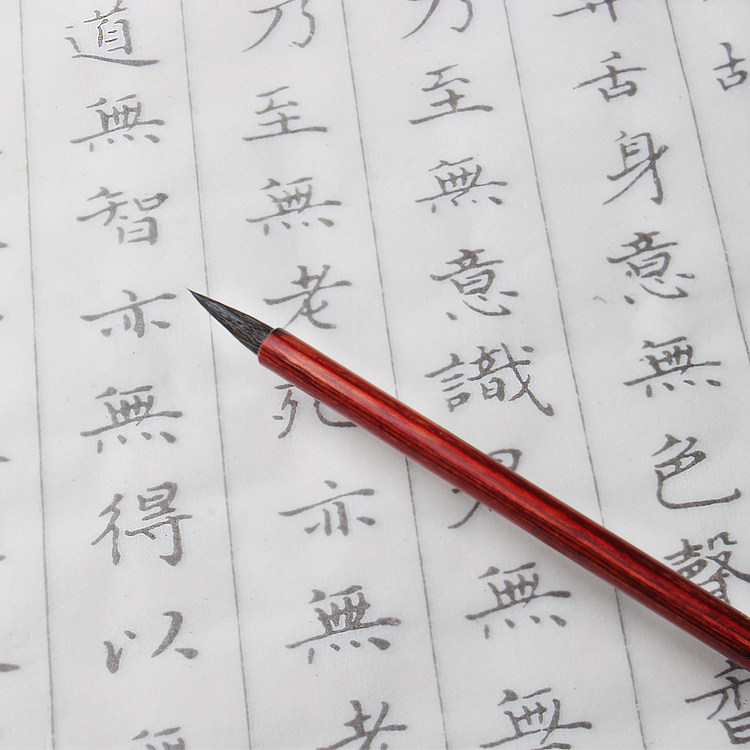 舌身意無色聲香
乃至無意識界無無
乃至無老死亦無老
道無智亦無得以無